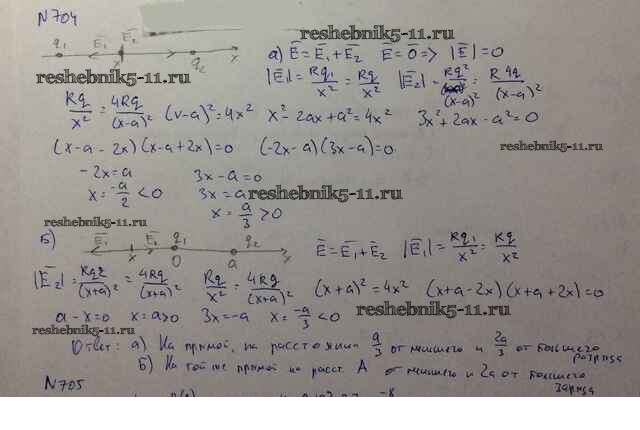 N704
reshebnik5-11.ru
q₁ E̅₁ E̅₂ x q₂ x
а) E̅ = E̅₁ + E̅₂ E̅ = 0̅ => |E̅| = 0
reshebnik5-11.ru
|E̅₁| = kq₁/x² = kq/x² |E̅₂| = kq²/(x-a)² = k4q/(x-a)²
kq/x² = 4kq/(x-a)² (x-a)² = 4x² x² - 2ax + a² = 4x² 3x² + 2ax - a² = 0
(x-a-2x)(x-a+2x)=0 (-2x-a)(3x-a)=0 reshebnik5-11.ru
-2x=a 3x-a=0
x = -a/2 < 0 3x = a reshebnik5-11.ru
x = a/3 > 0
reshebnik5-11.ru
Б) E̅₁ x E̅₂ q₁ 0 q₂ a x E̅ = E̅₁ + E̅₂ |E̅₁| = kq₁/x² = kq/x²
|E̅₂| = kq2/(x+a)² = 4kq/(x+a)² kq/x² = 4kq/(x+a)² (x+a)² = 4x² (x+a-2x)(x+a+2x)=0
reshebnik5-11.ru
a-x=0 x=a>0 3x=-a x = -a/3 < 0
reshebnik5-11.ru
Ответ: а) На прямой, на расстоянии a/3 от меньшего и 2a/3 от большего
Б) На той же прямой на расст. A от меньшего и 2a от большего
заряда
N705